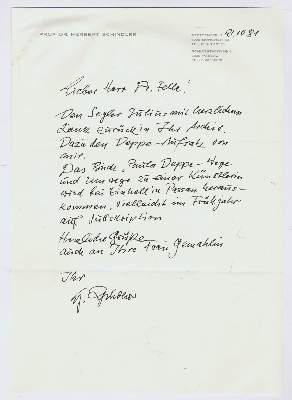 PROF. DR. HERBERT SCHINDLER
12.10.81
Lieber Herr Dr. Felle!
Den Segler Julius mit herzlichem
Dank zurück in Ihr Archiv.
Dazu den Deppe-Aufsatz von
mir.
Das Buch "Paula Deppe - Wege
und Umwege zu einer Künstlerin
wird bei in Passau heraus-
kommen. Vielleicht im Frühjahr
auf Subskription
Herzliche Grüße
auch an Ihre Frau Gemahlin
Ihr